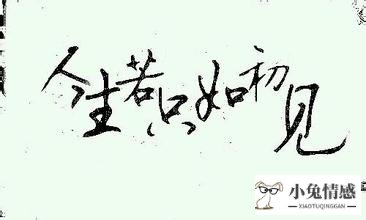 今生若只如初见
小兔情感
XIAOTUQINGGAN